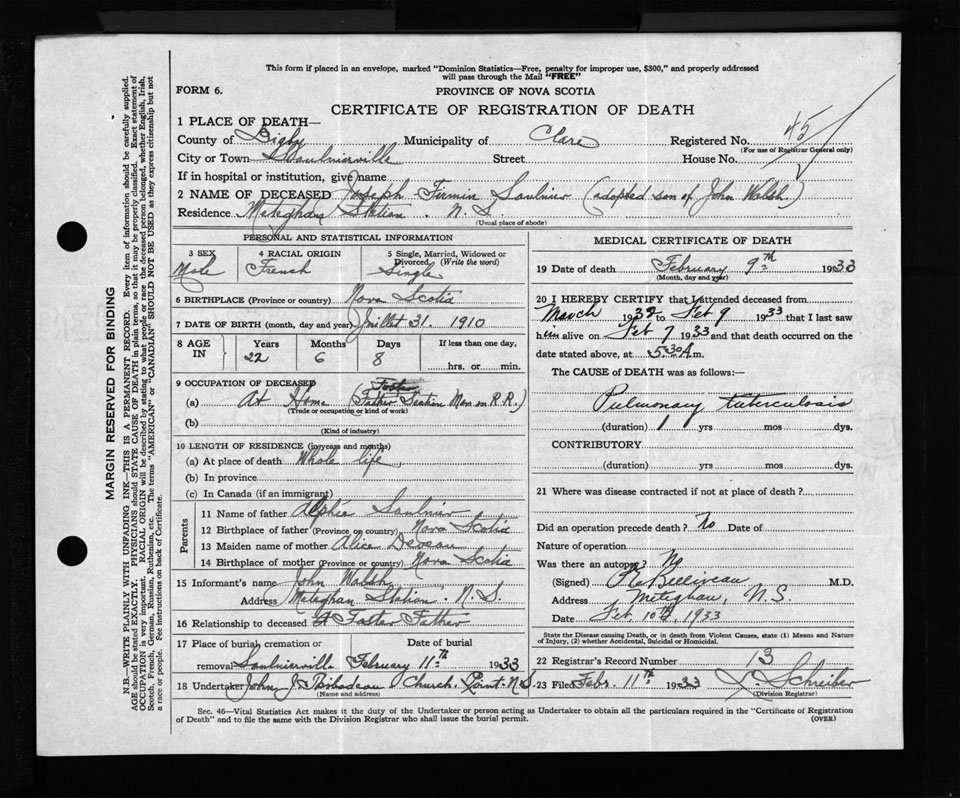 This form if placed in an envelope, marked "Dominion Statistics—Free, penalty for improper use, $300," and properly addressed
will pass through the Mail "FREE"
FORM 6.
PROVINCE OF NOVA SCOTIA
CERTIFICATE OF REGISTRATION OF DEATH
1 PLACE OF DEATH—
County of Digby Municipality of Clare Registered No. 45
(For use of Registrar General only)
City or Town Saulnierville Street House No.
If in hospital or institution, give name
2 NAME OF DECEASED Joseph Firmin Saulnier (adopted son of John Walsh.)
Residence Meteghan Station. N.S.
(Usual place of abode)
PERSONAL AND STATISTICAL INFORMATION
3 SEX 4 RACIAL ORIGIN 5 Single, Married, Widowed or
Divorced. (Write the word)
Male French Single
6 BIRTHPLACE (Province or country) Nova Scotia
7 DATE OF BIRTH (month, day and year) Juillet 31. 1910
8 AGE IN Years Months Days If less than one day,
22 6 8 hrs. or min.
9 OCCUPATION OF DECEASED Foster
(a) At Home (Father Section Man on R.R.)
(Trade or occupation or kind of work)
(b)
(Kind of industry)
10 LENGTH OF RESIDENCE (in years and months)
(a) At place of death Whole life
(b) In province
(c) In Canada (if an immigrant)
Parents
11 Name of father Alphée Saulnier
12 Birthplace of father (Province or country) Nova Scotia
13 Maiden name of mother Alice Deveau
14 Birthplace of mother (Province or country) Nova Scotia
15 Informant's name John Walsh
Address Meteghan Station. N.S.
16 Relationship to deceased Foster Father
17 Place of burial, cremation or Date of burial
removal Saulnierville February 11th 1933
18 Undertaker John J. Thibodeau Church Point N.S.
(Name and address)
MEDICAL CERTIFICATE OF DEATH
19 Date of death February 9th 1933
(Month, day and year)
20 I HEREBY CERTIFY that I attended deceased from
March 1932 to Feb 9 1933 that I last saw
him alive on Feb 7 1933 and that death occurred on the
date stated above, at 5.30 A.m.
The CAUSE OF DEATH was as follows:—
Pulmonary tuberculosis
(duration) 1 yrs mos dys.
CONTRIBUTORY
(duration) yrs mos dys.
21 Where was disease contracted if not at place of death?
Did an operation precede death? No Date of
Nature of operation
Was there an autopsy? No
(Signed) Belliveau M.D.
Address Meteghan, N.S.
Date Feb. 10th, 1933
State the Disease causing Death, or in death from Violent Causes, state (1) Means and Nature
of Injury, (2) whether Accidental, Suicidal or Homicidal.
22 Registrar's Record Number 13
23 Filed Febr. 11th 1933 L Schreiber
(Division Registrar)
Sec. 46—Vital Statistics Act makes it the duty of the Undertaker or person acting as Undertaker to obtain all the particulars required in the "Certificate of Registration
of Death" and to file the same with the Division Registrar who shall issue the burial permit.
(OVER)
MARGIN RESERVED FOR BINDING
N.B.—WRITE PLAINLY WITH UNFADING INK—THIS IS A PERMANENT RECORD. Every item of information should be carefully supplied.
AGE should be stated EXACTLY. PHYSICIANS should STATE CAUSE OF DEATH in plain terms, so that it may be properly classified. Exact statement of
OCCUPATION is very important. RACIAL ORIGIN will be described by stating to what people or race the deceased person belonged, whether English, Irish,
Scotch, French, German, Russian, Ruthenian, etc. The terms "AMERICAN" or "CANADIAN" SHOULD NOT BE USED as they express citizenship but not
a race or people. See instructions on back of Certificate.